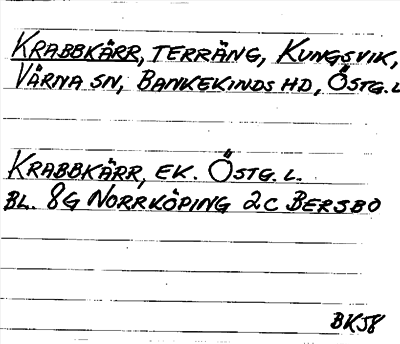 KRABBKÄRR, TERRÄNG, KUNGSVIK,
VÄRNA SN, BANKEKINDS HD, ÖSTG. L
KRABBKÄRR, EK. ÖSTG. L.
BL. 8G NORRKÖPING 2C BERSBO
BK58